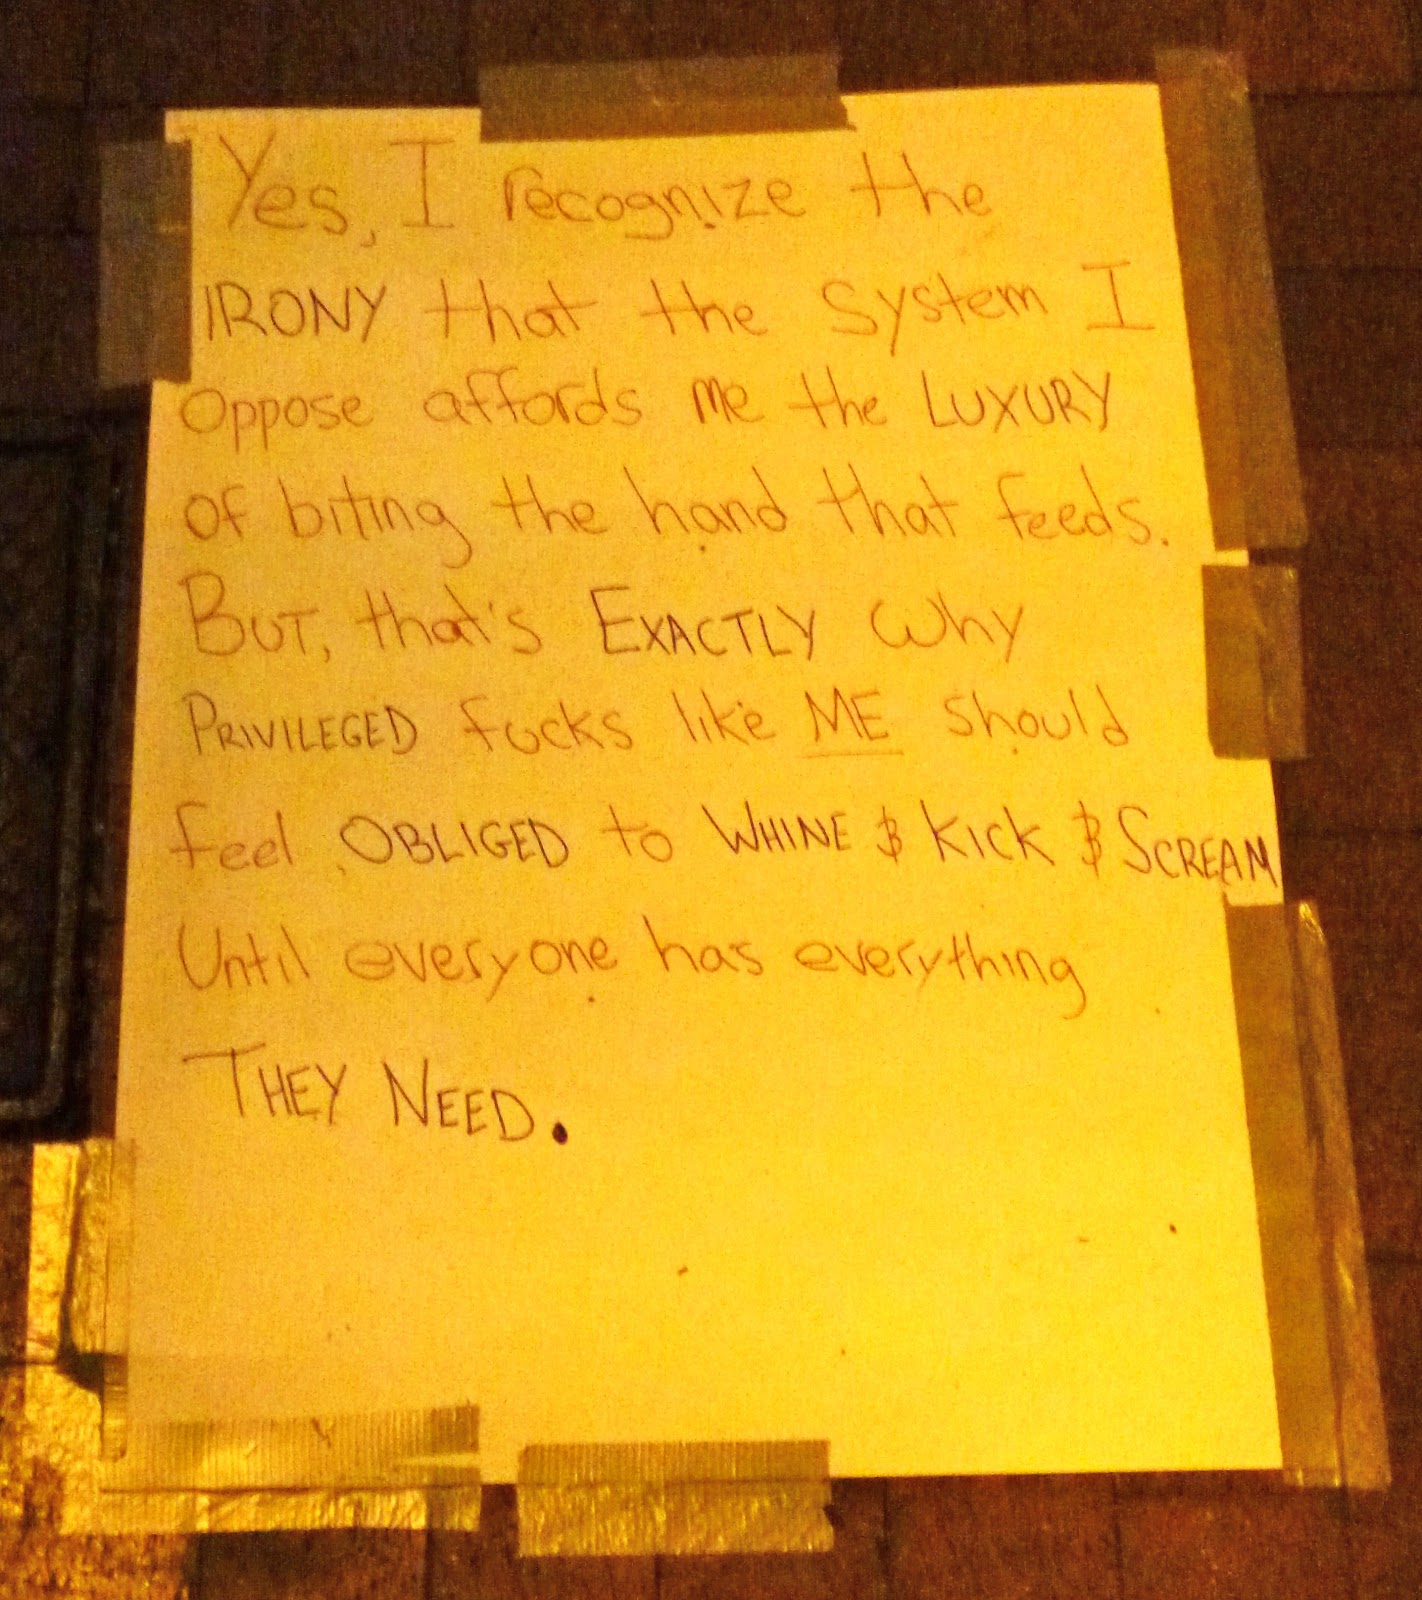 Yes, I recognize the
IRONY that the system I
oppose affords me the LUXURY
of biting the hand that feeds.
BUT, that's EXACTLY why
PRIVILEGED fucks like ME should
feel OBLIGED to WHINE & KICK & SCREAM
Until everyone has everything
THEY NEED.